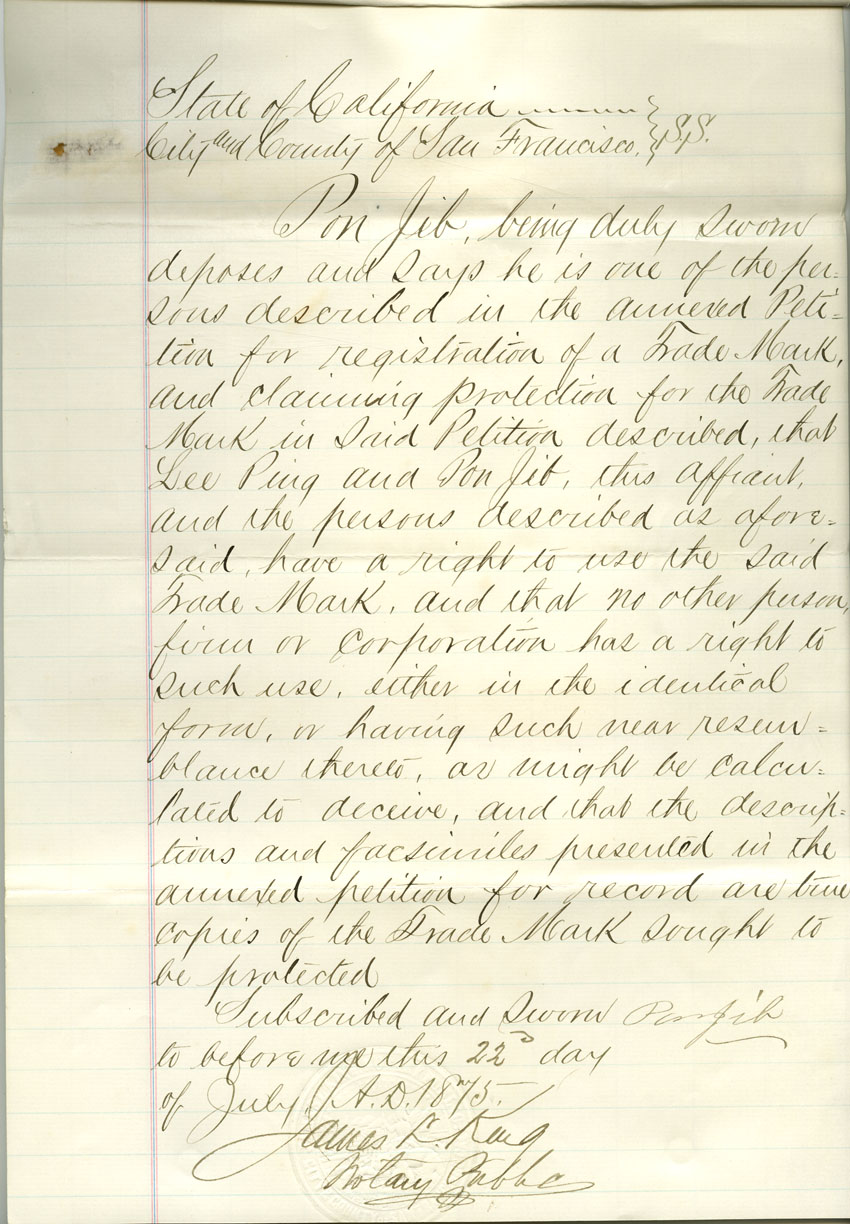 State of California
City and County of San Francisco. } S.S.
Pon Jib, being duly sworn
deposes and says he is one of the per=
sons described in the annexed Peti=
tion for registration of a Trade Mark,
and claiming protection for the Trade
Mark in said Petition described, that
Lee Ping and Pon Jib, this affiant,
and the persons described as afore=
said, have a right to use the said
Trade Mark, and that no other person,
firm or corporation has a right to
such use, either in the identical
form, or having such near resem=
blance thereto, as might be calcu=
lated to deceive, and that the descrip=
tions and facsimiles presented in the
annexed petition for record are true
copies of the Trade Mark sought to
be protected
Subscribed and sworn Pon Jib
to before me this 22d day
of July, A.D. 1875.
James L. King
Notary Public